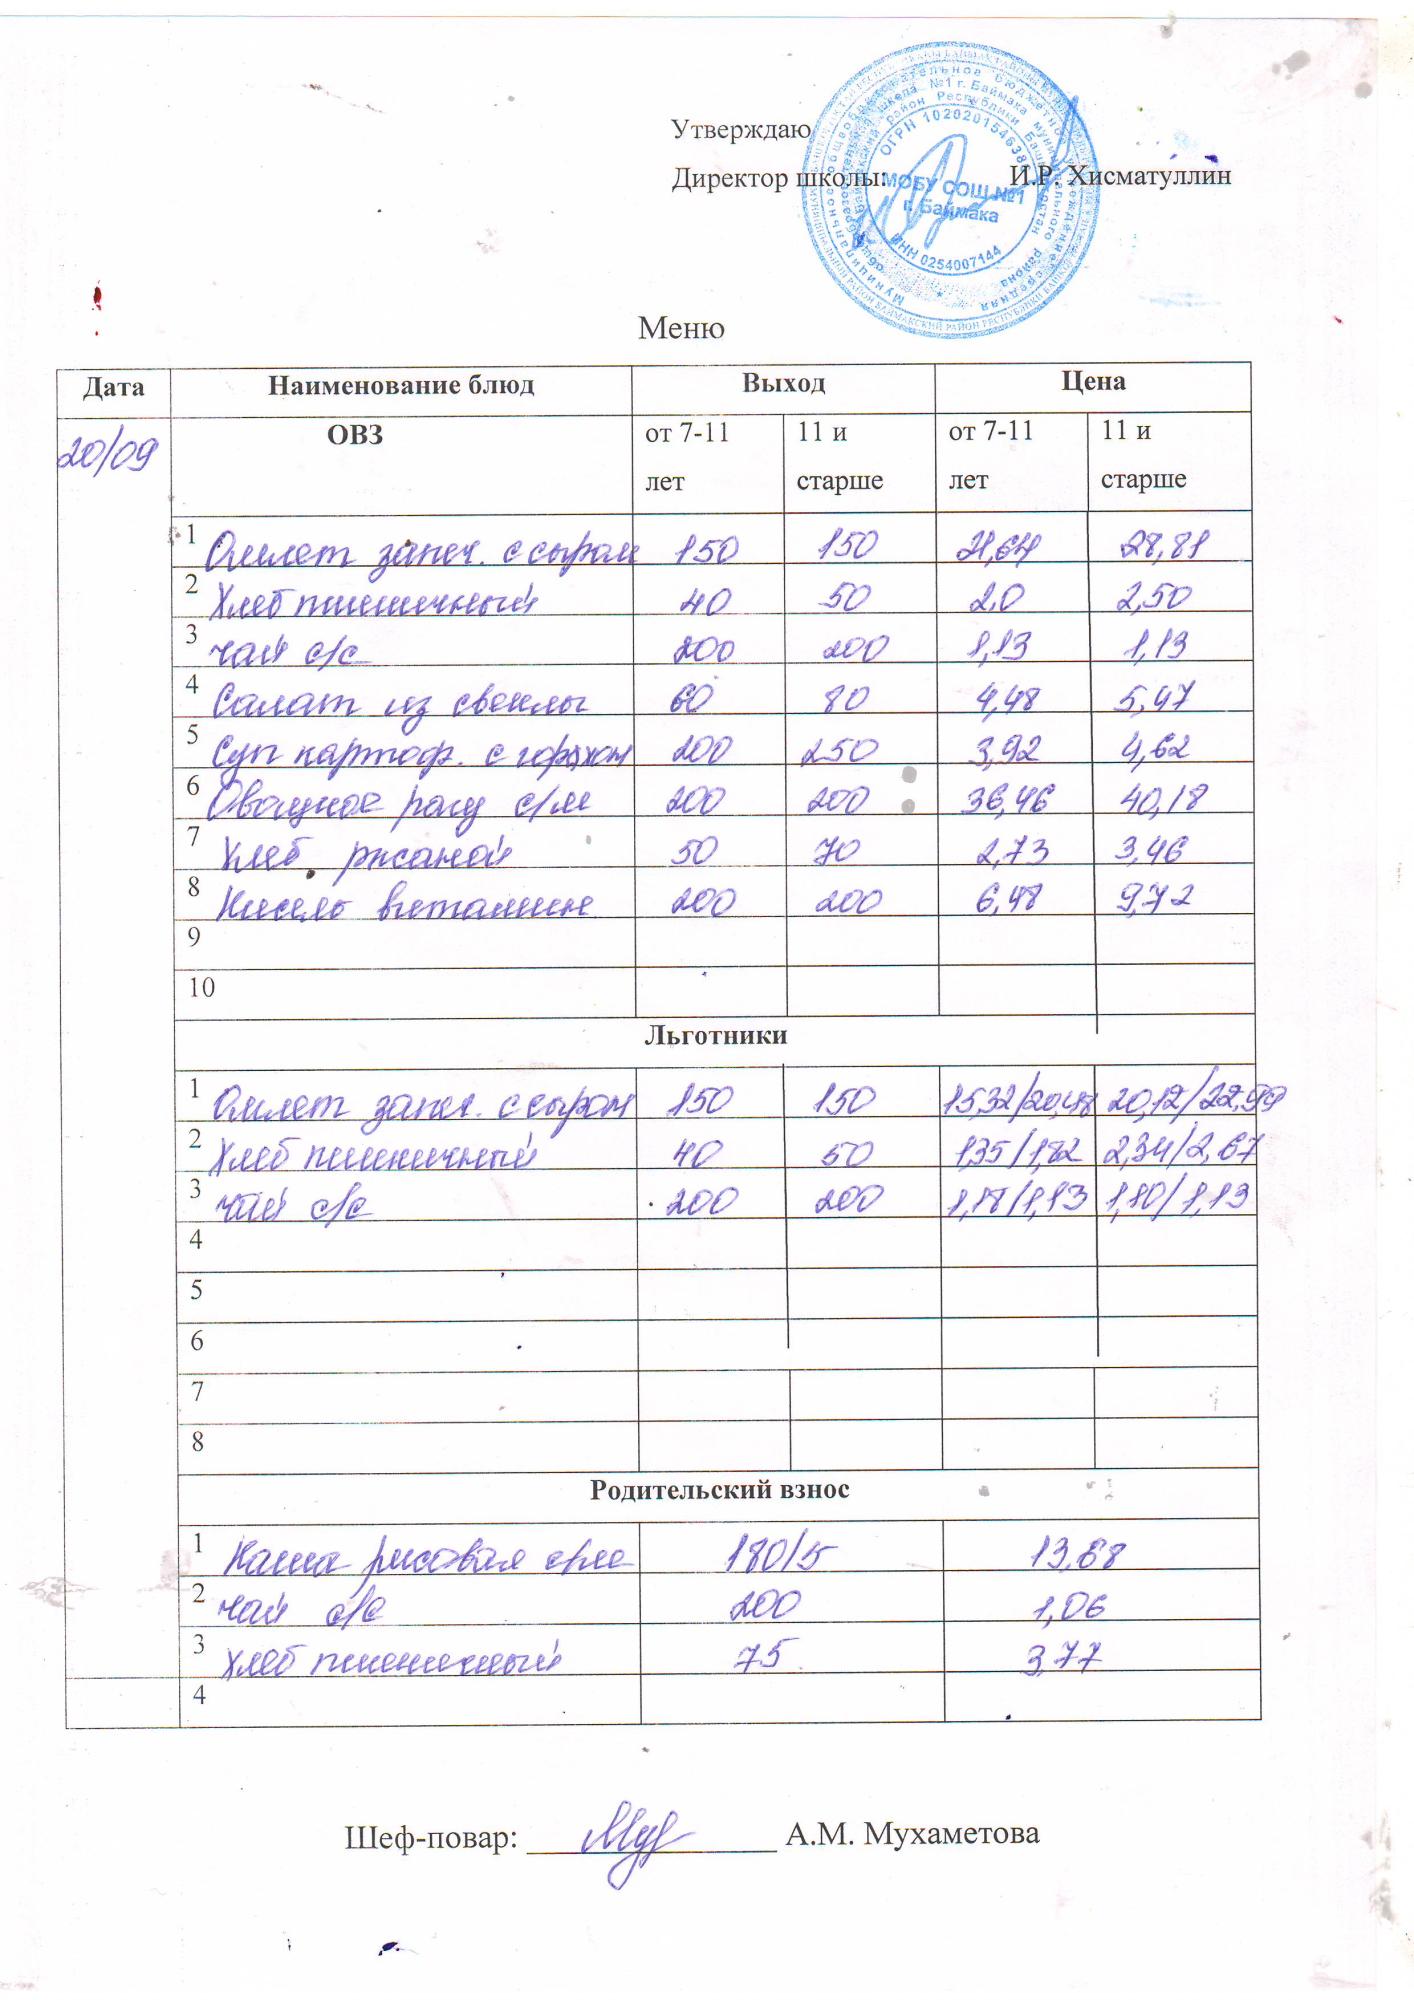 Утверждаю
Директор школы: И.Р. Хисматуллин
ОГРН 102020154638
МОБУ СОШ №1
г. Баймака
ИНН 0254007144
Меню
Дата Наименование блюд Выход Цена
20/09 ОВЗ от 7-11 лет 11 и старше от 7-11 лет 11 и старше
1 Омлет запеч. с сыром 150 150 21,64 28,81
2 Хлеб пшеничный 40 50 2,0 2,50
3 чай с/с 200 200 1,13 1,13
4 Салат из свеклы 60 80 4,48 5,47
5 Суп картоф. с горохом 200 250 3,92 4,62
6 Овощное рагу с/м 200 200 36,46 40,18
7 Хлеб ржаной 50 70 2,73 3,46
8 Кисель витамин 200 200 6,48 9,72
9
10
Льготники
1 Омлет запеч. с сыром 150 150 15,32/20,48 20,12/22,99
2 Хлеб пшеничный 40 50 1,35/1,82 2,34/2,67
3 чай с/с 200 200 1,18/1,13 1,10/1,13
4
5
6
7
8
Родительский взнос
1 Каша рисовая с/м 180/5 13,68
2 чай с/с 200 1,06
3 Хлеб пшеничный 75 3,77
4
Шеф-повар: А.М. Мухаметова